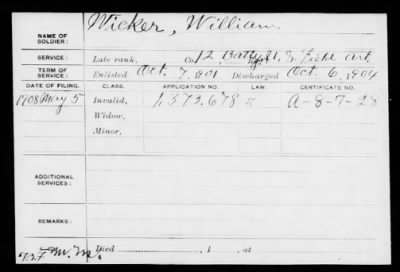 NAME OF SOLDIER: Wicker, William
SERVICE: Late rank, Co. 12 Batty, U.S. Field Art.
TERM OF SERVICE: Enlisted Oct. 7, 1901 Discharged Oct. 6, 1904
DATE OF FILING. CLASS. APPLICATION NO. LAW. CERTIFICATE NO.
1908 May 5 Invalid, 1,373,678 A-8-7-28
Widow,
Minor,
ADDITIONAL SERVICES:
REMARKS:
Died , 1 , at